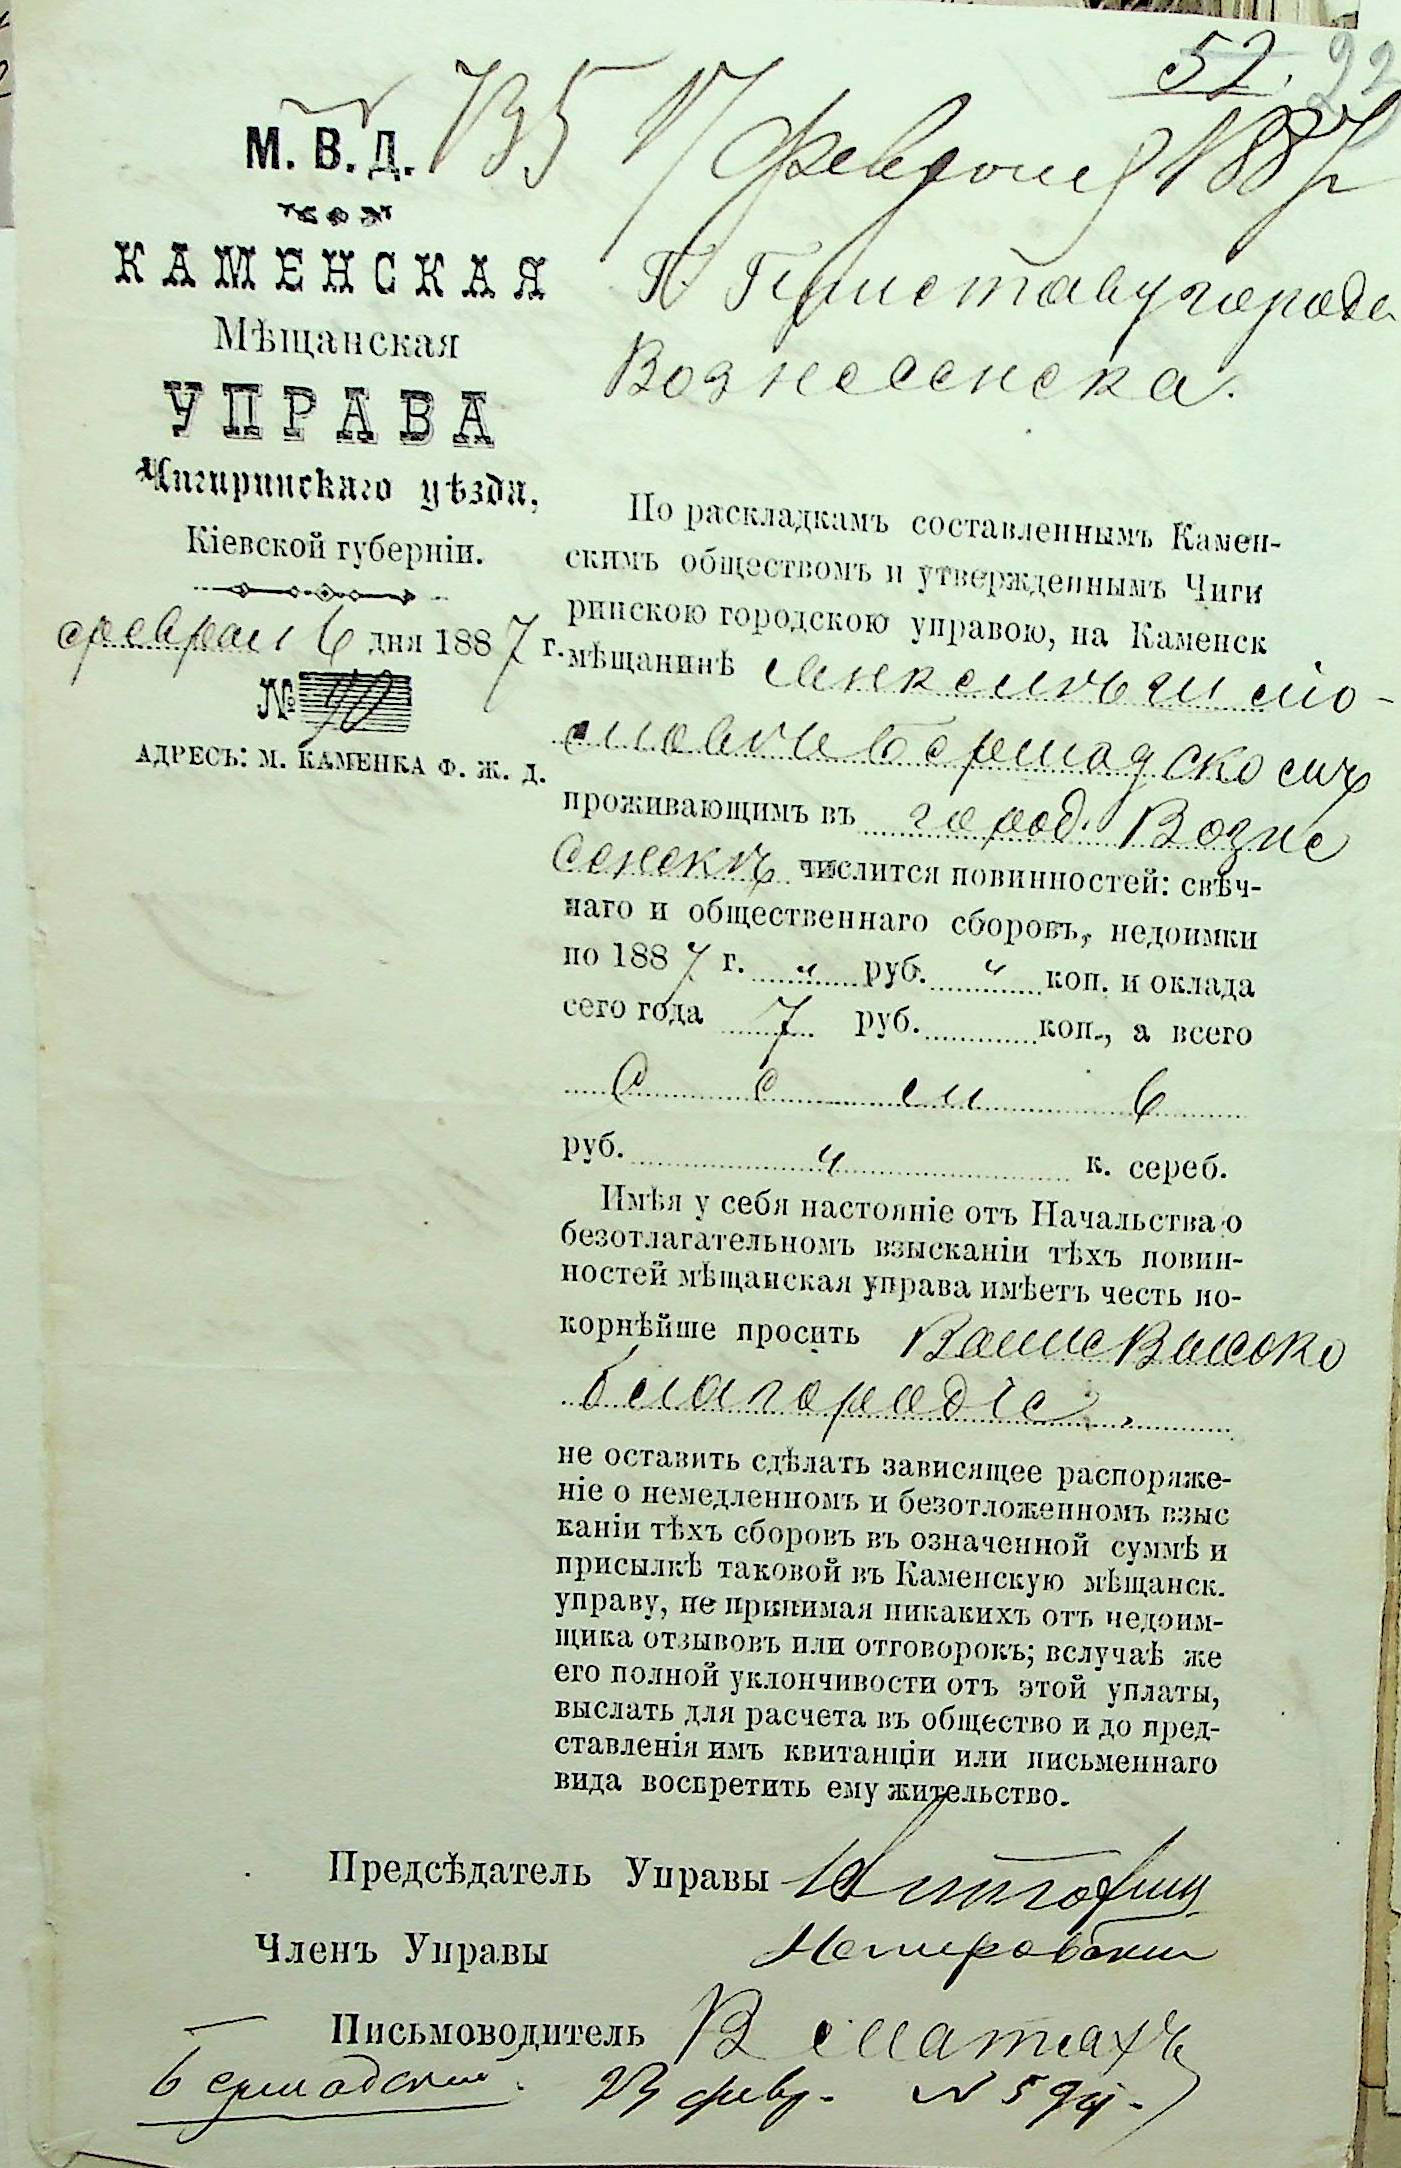 52. 22
№ 735 17 февраля 1887 г
М. В. Д.
КАМЕНСКАЯ
Мѣщанская
УПРАВА
Чигиринскаго уѣзда,
Кіевской губерніи.
феврал 6 дня 1887 г.
№ 90
АДРЕСЪ: м. КАМЕНКА Ф. Ж. Д.
Г. Приставу города
Вознесенска.
По раскладкамъ составленнымъ Камен-
скимъ обществомъ и утвержденнымъ Чиги
ринскою городскою управою, на Каменск
мѣщанинѣ
Бершадскомъ
проживающимъ въ город. Возне
сенскѣ числится повинностей: свѣч-
наго и общественнаго сборовъ, недоимки
по 1887 г. „ руб. „ коп. и оклада
сего года 7 руб. коп., а всего
Семь
руб. „ к. сереб.
Имѣя у себя настояніе отъ Начальства о
безотлагательномъ взысканіи тѣхъ повин-
ностей мѣщанская управа имѣетъ честь по-
корнѣйше просить Ваше Высоко
благородіе
не оставить сдѣлать зависящее распоряже-
ніе о немедленномъ и безотложенномъ взыс
каніи тѣхъ сборовъ въ означенной суммѣ и
присылкѣ таковой въ Каменскую мѣщанск.
управу, не принимая никакихъ отъ недоим-
щика отзывовъ или отговорокъ; вслучаѣ же
его полной уклончивости отъ этой уплаты,
выслать для расчета въ общество и до пред-
ставленія имъ квитанціи или письменнаго
вида воспретить ему жительство.
Предсѣдатель Управы
Членъ Управы
Письмоводитель В
Бершадский. 23 февр. № 594.